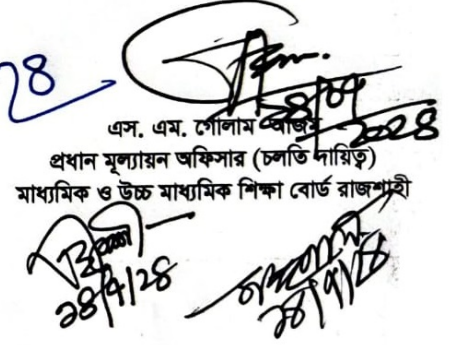 ২৪
২৪/০৭
২০২৪
এস. এম. গোলাম আজম
প্রধান মূল্যায়ন অফিসার (চলতি দায়িত্ব)
মাধ্যমিক ও উচ্চ মাধ্যমিক শিক্ষা বোর্ড রাজশাহী
২৪/৭/২৪
২৪/৭/২৪